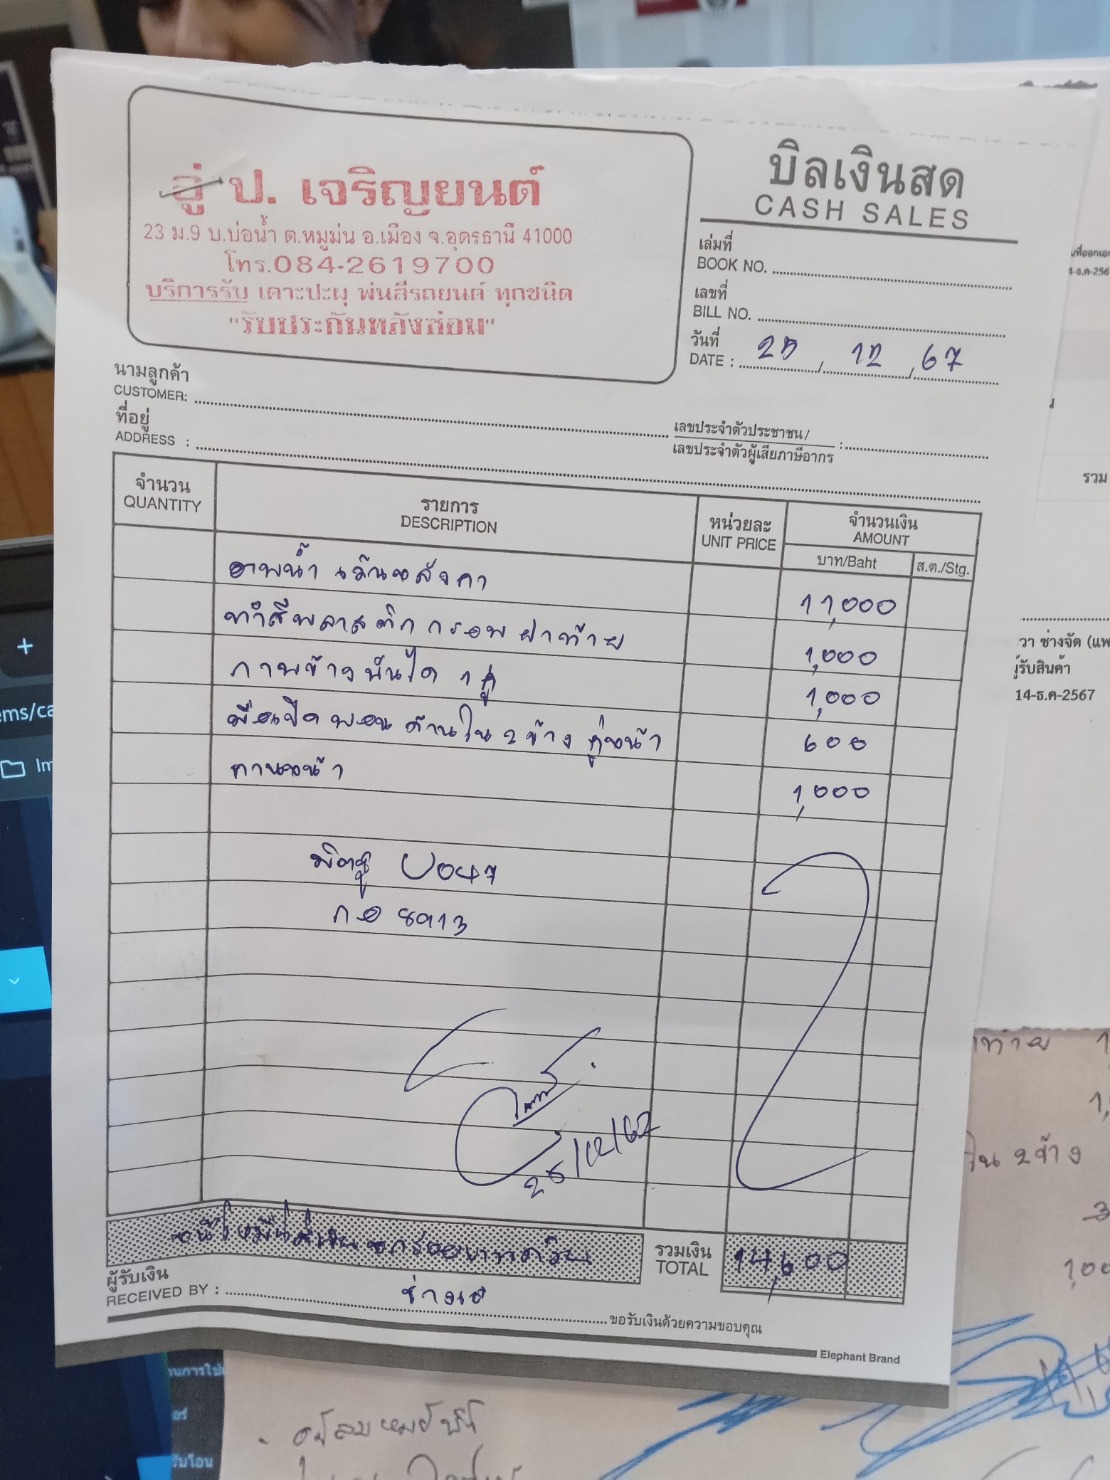 อู่ ป. เจริญยนต์
23 ม.9 บ.บ่อน้ำ ต.หมูม่น อ.เมือง จ.อุดรธานี 41000
โทร.084-2619700
บริการรับ เคาะปะผุ พ่นสีรถยนต์ ทุกชนิด
"รับประกันหลังซ่อม"
บิลเงินสด
CASH SALES
เล่มที่
BOOK NO.
เลขที่
BILL NO.
วันที่
DATE : 25 / 12 / 67
นามลูกค้า
CUSTOMER:
ที่อยู่
ADDRESS :
เลขประจำตัวประชาชน/
เลขประจำตัวผู้เสียภาษีอากร :
จำนวน
QUANTITY
รายการ
DESCRIPTION
หน่วยละ
UNIT PRICE
จำนวนเงิน
AMOUNT
บาท/Baht
ส.ต./Stg.
11,000
ทำสีพลาสติก กรอบ ฝาท้าย 1,000
กาบข้างบันได 1 คู่ 1,000
มือเปิด ด้านใน 2 ข้าง คู่หน้า 600
1,000
U047
กอ 8913
25/12/67
รวมเงิน
TOTAL 14,600
ผู้รับเงิน
RECEIVED BY : ช่างเอ
ขอรับเงินด้วยความขอบคุณ
Elephant Brand
รวม
วา ช่างจัด (แพ
ผู้รับสินค้า
14-ธ.ค-2567
ใน 2 ข้าง
ems/ca